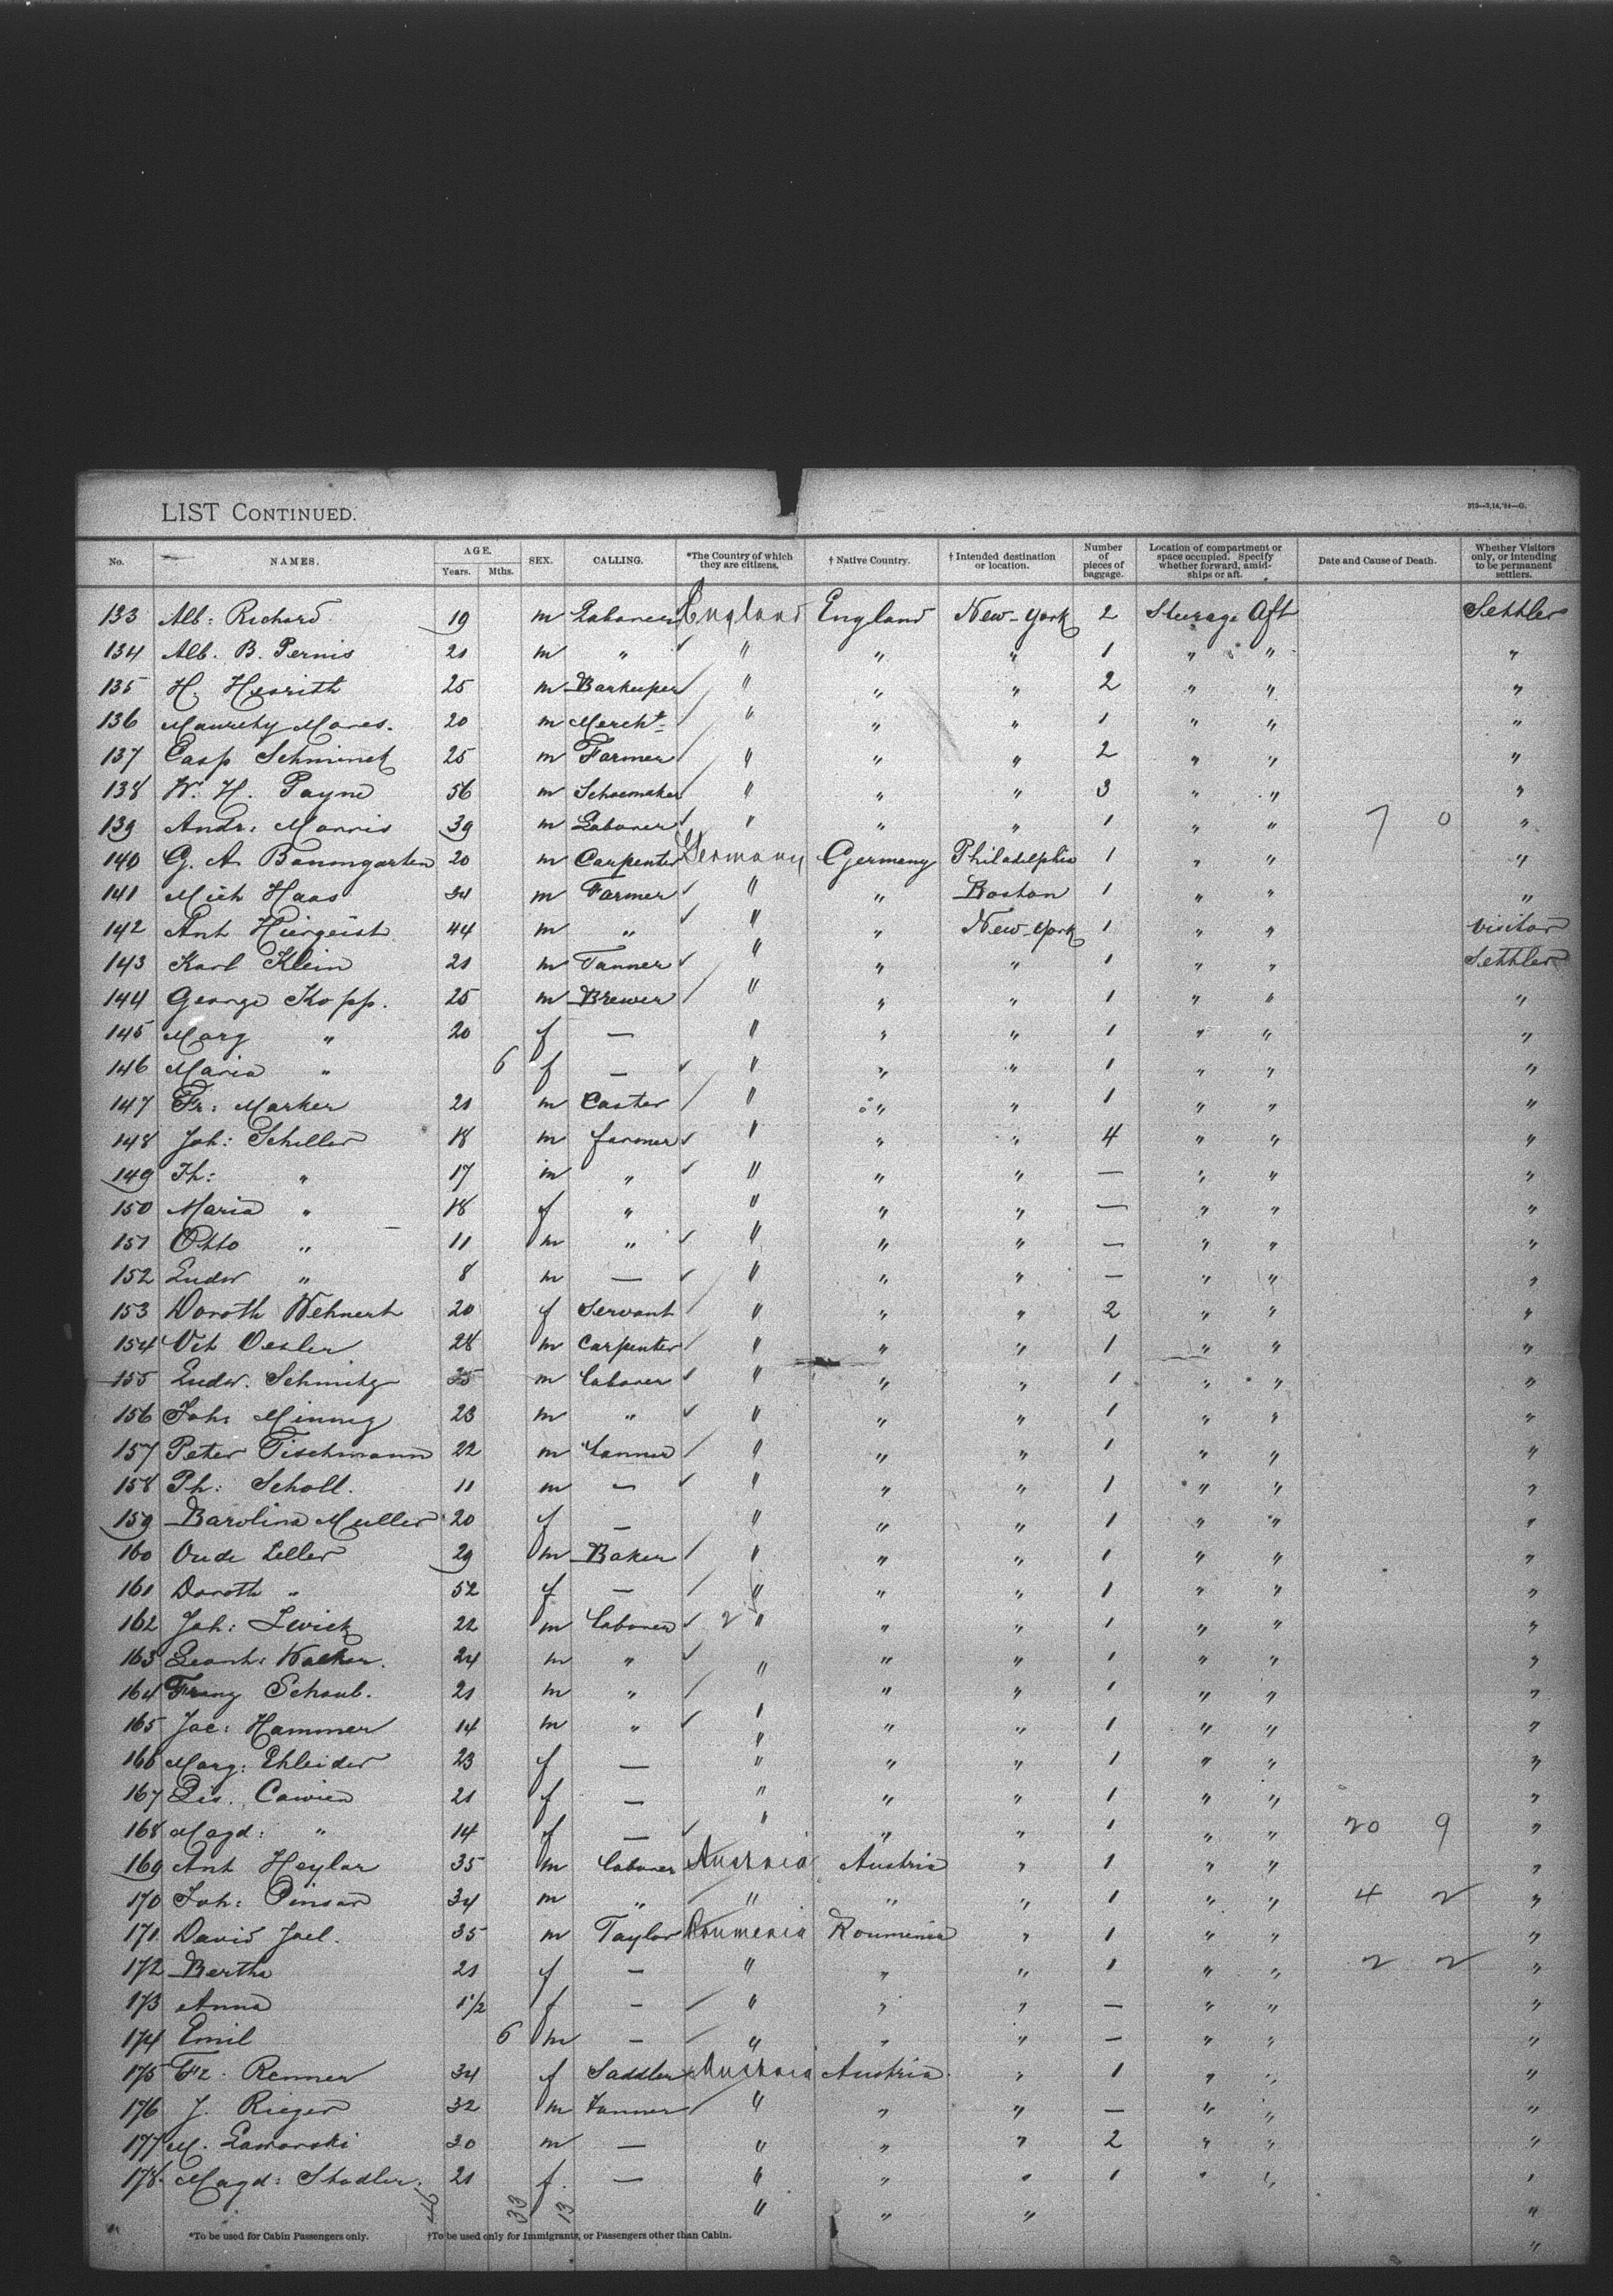 LIST CONTINUED.
No. NAMES. AGE. Years. Mths. SEX. CALLING. *The Country of which they are citizens. † Native Country. † Intended destination or location. Number of pieces of baggage. Location of compartment or space occupied. Specify whether forward, amidships or aft. Date and Cause of Death. Whether Visitors only, or intending to be permanent settlers.
133 Alb: Richard 19 m Laborer England England New-York 2 Steerage Aft Settler
134 Alb. B. Pernis 21 m " " " " 1 " " "
135 H. Hesrith 25 m Barkeeper " " " 2 " " "
136 Mares. 20 m Mercht " " " 1 " " "
137 Casp Schminck 25 m Farmer " " " 2 " " "
138 W. H. Payne 56 m Schoemaker " " " 3 " " "
139 Andr: Morris 39 m Laborer " " " 1 " " 7 0 "
140 G. A. Baumgarten 20 m Carpenter Germany Germany Philadelphia 1 " " "
141 Mich Haas 34 m Farmer " " Boston 1 " " "
142 Ant Hiergeist 44 m " " " New-York 1 " " visitor
143 Karl Klein 21 m Tanner " " " 1 " " Settler
144 George Kopp. 25 m Brewer " " " 1 " " "
145 Marg " 20 f — " " " 1 " " "
146 Maria " 6 f — " " " 1 " " "
147 Fr: Marker 21 m Caster " " " 1 " " "
148 Joh: Schiller 18 m farmer " " " 4 " " "
149 Th: " 17 m " " " " — " " "
150 Maria " 18 f " " " " — " " "
151 Otto " 11 m " " " " — " " "
152 Ludw " 8 m — " " " — " " "
153 Doroth Wehnert 20 f Servant " " " 2 " " "
154 Vit Oesler 28 m Carpenter " " " 1 " " "
155 Ludw. Schmitz 35 m laborer " " " 1 " " "
156 Joh: Minnig 23 m " " " " 1 " " "
157 Peter Tischmann 22 m tanner " " " 1 " " "
158 Ph: Scholl. 11 m — " " " 1 " " "
159 Barolina Muller 20 f — " " " 1 " " "
160 Zeller 29 m Baker " " " 1 " " "
161 Doroth " 52 f — " " " 1 " " "
162 Joh: Zwick 22 m laborer 2 " " " 1 " " "
163 Leonh: Walker. 24 m " " " " 1 " " "
164 Franz Schaub. 21 m " " " " 1 " " "
165 Jac: Hammer 14 m " " " " 1 " " "
166 Marg: Ehleider 23 f — " " " 1 " " "
167 Lis. Cawien 21 f — " " " 1 " " "
168 Magd: " 14 f — " " " 1 " " 20 9 "
169 Ant Heylar 35 m laborer Austria Austria " 1 " " "
170 Joh: Pinsar 34 m " " " " 1 " " 4 2 "
171 David Joel. 35 m Taylor Roumenia Roumenia " 1 " " "
172 Bertha 21 f — " " " 1 " " 2 2 "
173 Anna 1 1/2 f — " " " — " " "
174 Emil 6 m — " " " — " " "
175 Fz. Renner 34 f Saddler Austria Austria " 1 " " "
176 J. Rieger 32 m tanner " " " — " " "
177 M. Laworski 30 m — " " " 2 " " "
178. Magd: Stadler. 21 f. — " " " 1 " " "
46 33 13 " " " "
*To be used for Cabin Passengers only. †To be used only for Immigrants, or Passengers other than Cabin. "